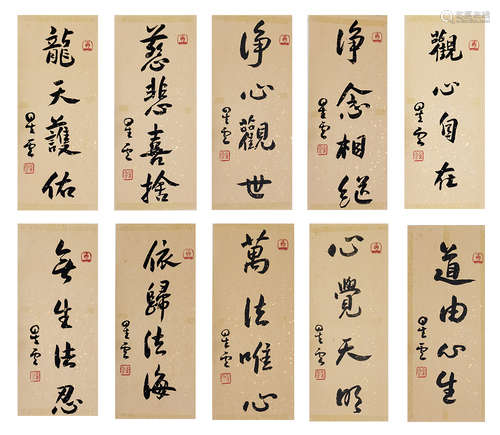 龍天護佑
星雲
慈悲喜捨
星雲
淨心觀世
星雲
淨念相繼
星雲
觀心自在
星雲
無生法忍
星雲
依歸法海
星雲
萬法唯心
星雲
心覺天明
星雲
道由心生
星雲